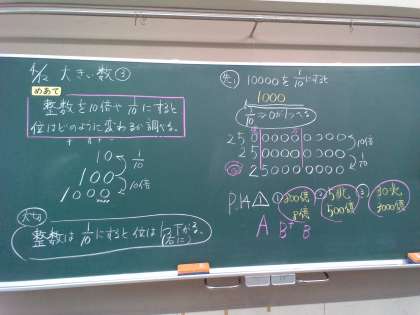 4/12 大きい数③
めあて
整数を10倍や1/10にすると
位はどのように変わるか調べる。
10
100
1000
1/10
10倍
大切
整数は1/10にすると位は1つ下がる。
先. 10000を1/10にすると
1000
1/10→0が1つへる
250000000000
250000000000
250000000000
10倍
1/10
P.14 △1 ①300億 ②5兆 ③30兆
500億 3000億
A B B